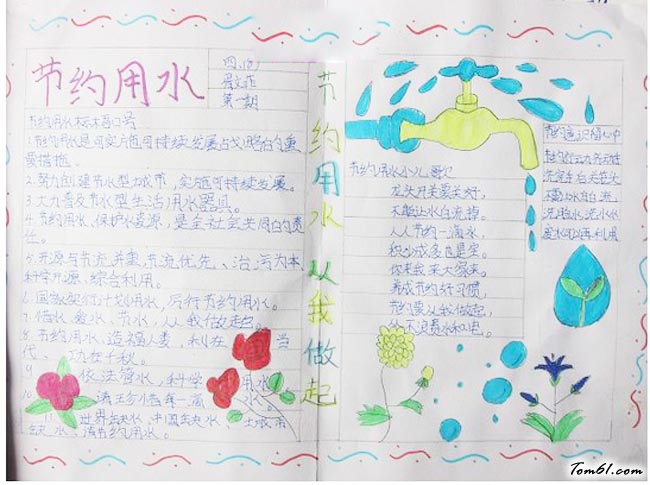 节约用水
四
第一期
节约用水标语口号
1.节约用水是可实施可持续发展战略的重
要措施。
2.努力创建节水型城市,实施可持续发展。
3.大力普及节水型生活用水器具。
4.节约用水、保护水资源,是全社会共同的责
任。
5.开源与节流并重,节流优先、治污为本
科学开源、综合利用。
6.国家实行计划用水,厉行节约用水。
7.惜水、爱水、节水,从我做起。
8.节约用水、造福人类,利在当
代、功在千秋。
9 依法管水,科学用水
10 请珍惜每一滴水。
11 世界缺水、中国缺水、城市
缺水、请节约用水。
节约用水从我做起
节约用水小儿歌
龙头开关要关好,
不能让水白流掉。
人人节约一滴水,
积少成多
你来我来大家来,
养成节约好习惯,
节约要从我做起,
节约意识留心中
洗完手后关笼头
洗脸水、洗小水
爱水可以再利用
Tom61.com